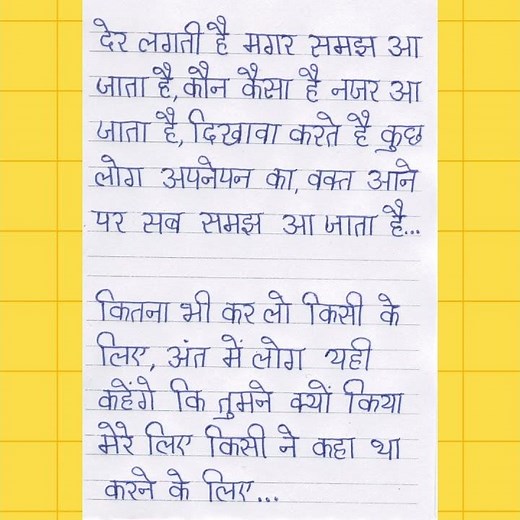 देर लगती है मगर समझ आ
जाता है, कौन कैसा है नजर आ
जाता है, दिखावा करते है कुछ
लोग अपनेपन का, वक्त आने
पर सब समझ आ जाता है...
कितना भी कर लो किसी के
लिए, अंत में लोग यही
कहेंगे कि तुमने क्यों किया
मेरे लिए किसी ने कहा था
करने के लिए...